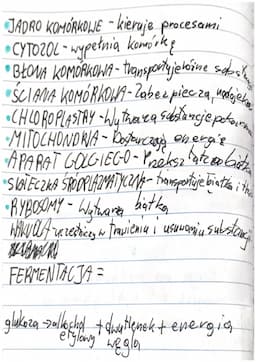 • JĄDRO KOMÓRKOWE - kieruje procesami
• CYTOZOL - wypełnia komórkę
• BŁONA KOMÓRKOWA - transportuje różne subst
• ŚCIANA KOMÓRKOWA - Zabezpiecza, nadaje
• CHLOROPLASTRY - Wytwarza substancje pokarm
• MITOCHONDRIA - Dostarczają energię
• APARAT GOLGIEGO - Przekształca białka
• SIATECZKA ŚRÓDPLAZMATYCZNA - transportuje białka i
• RYBOSOMY - Wytwarza białka
WAKUOLA - uczestniczy w trawieniu i usuwaniu substancji
FERMENTACJA =
glukoza → alkohol etylowy + dwutlenek węgla + energia